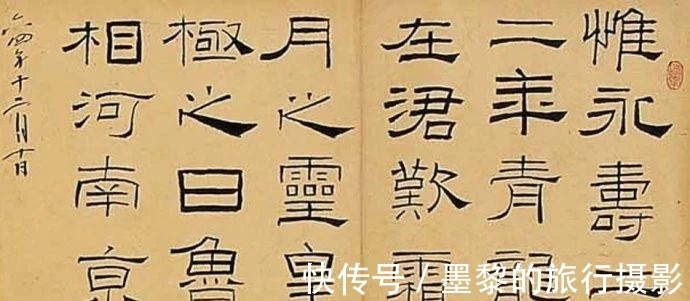 惟永壽
二年青
在涒歎霜
月之靈皇
極之日魯
相河南京
六四年十二月
快传号 / 墨黎的旅行摄影